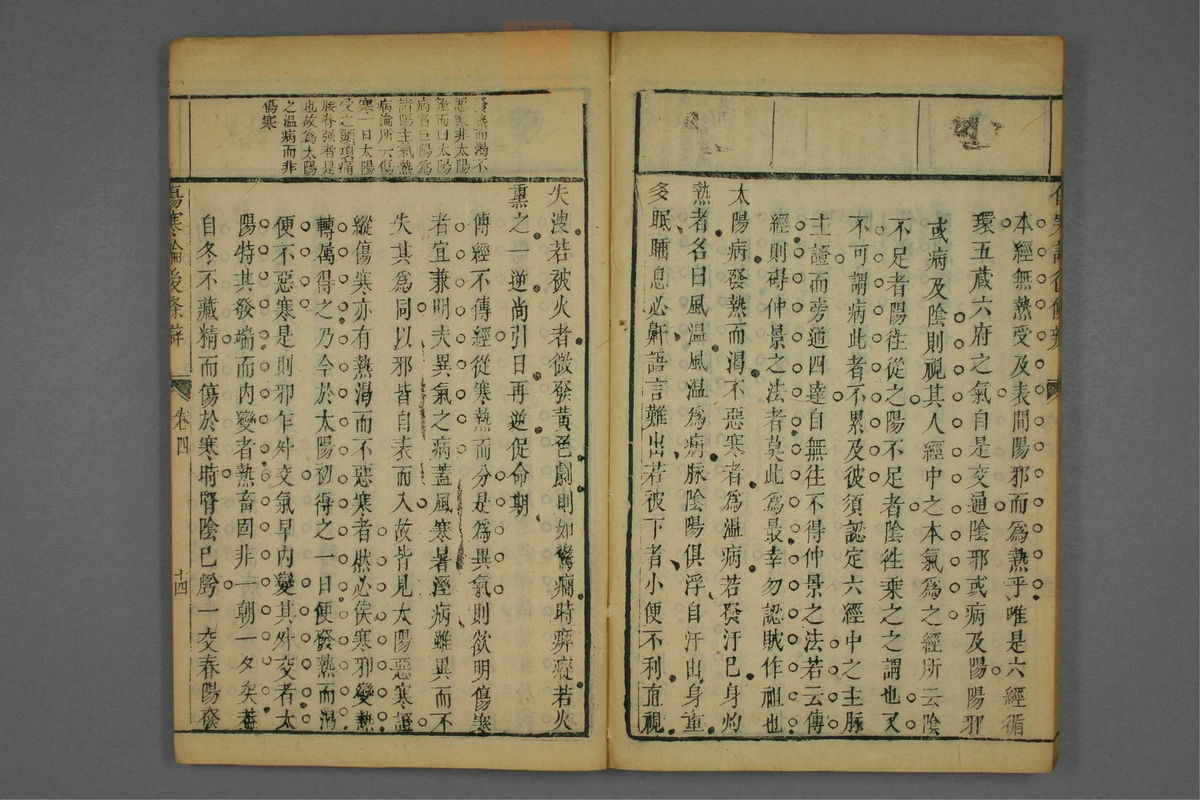 本經無熱受及表間陽邪而爲熱乎唯是六經循
環五蔵六府之氣自是交通陰邪或病及陽陽邪
或病及陰則視其人經中之本氣爲之經所云陰
不足者陽往從之陽不足者陰徃乘之之謂也又
不可謂病此者不累及彼須認定六經中之主脉
主證而旁通四達自無往不得仲景之法若云傳
經則碍仲景之法者莫此爲最幸勿認賊作祖也
太陽病發熱而渴不惡寒者爲温病若發汗已身灼
熱者名曰風温風温爲病脉陰陽俱浮自汗出身重
多眠睡息必鼾語言難出若被下者小便不利直視
發熱而渴不
惡寒非太陽
證而曰太陽
病者巨陽爲
諸陽主氣熱
病論所云傷
寒一日太陽
受之頭項痛
腰脊强者是
也故爲太陽
之温病而非
傷寒
傷寒論後條辨
卷四
十四
失溲若被火者微發黃色劇則如驚癇時瘛瘲若火
熏之一逆尚引日再逆促命期
傳經不傳經從寒熱而分是爲異氣則欲明傷寒
者宜兼明夫異氣之病蓋風寒暑溼病雖異而不
失其爲同以邪皆自表而入故皆見太陽惡寒證
縱傷寒亦有熱渴而不惡寒者然必俟寒邪變熱
轉属得之乃今於太陽初得之一日便發熱而渴
便不惡寒是則邪乍外交氣早内變其外交者太
陽特其發端而内變者熱畜固非一朝一夕矣蓋
自冬不藏精而傷於寒時腎陰已虧一交春陽發